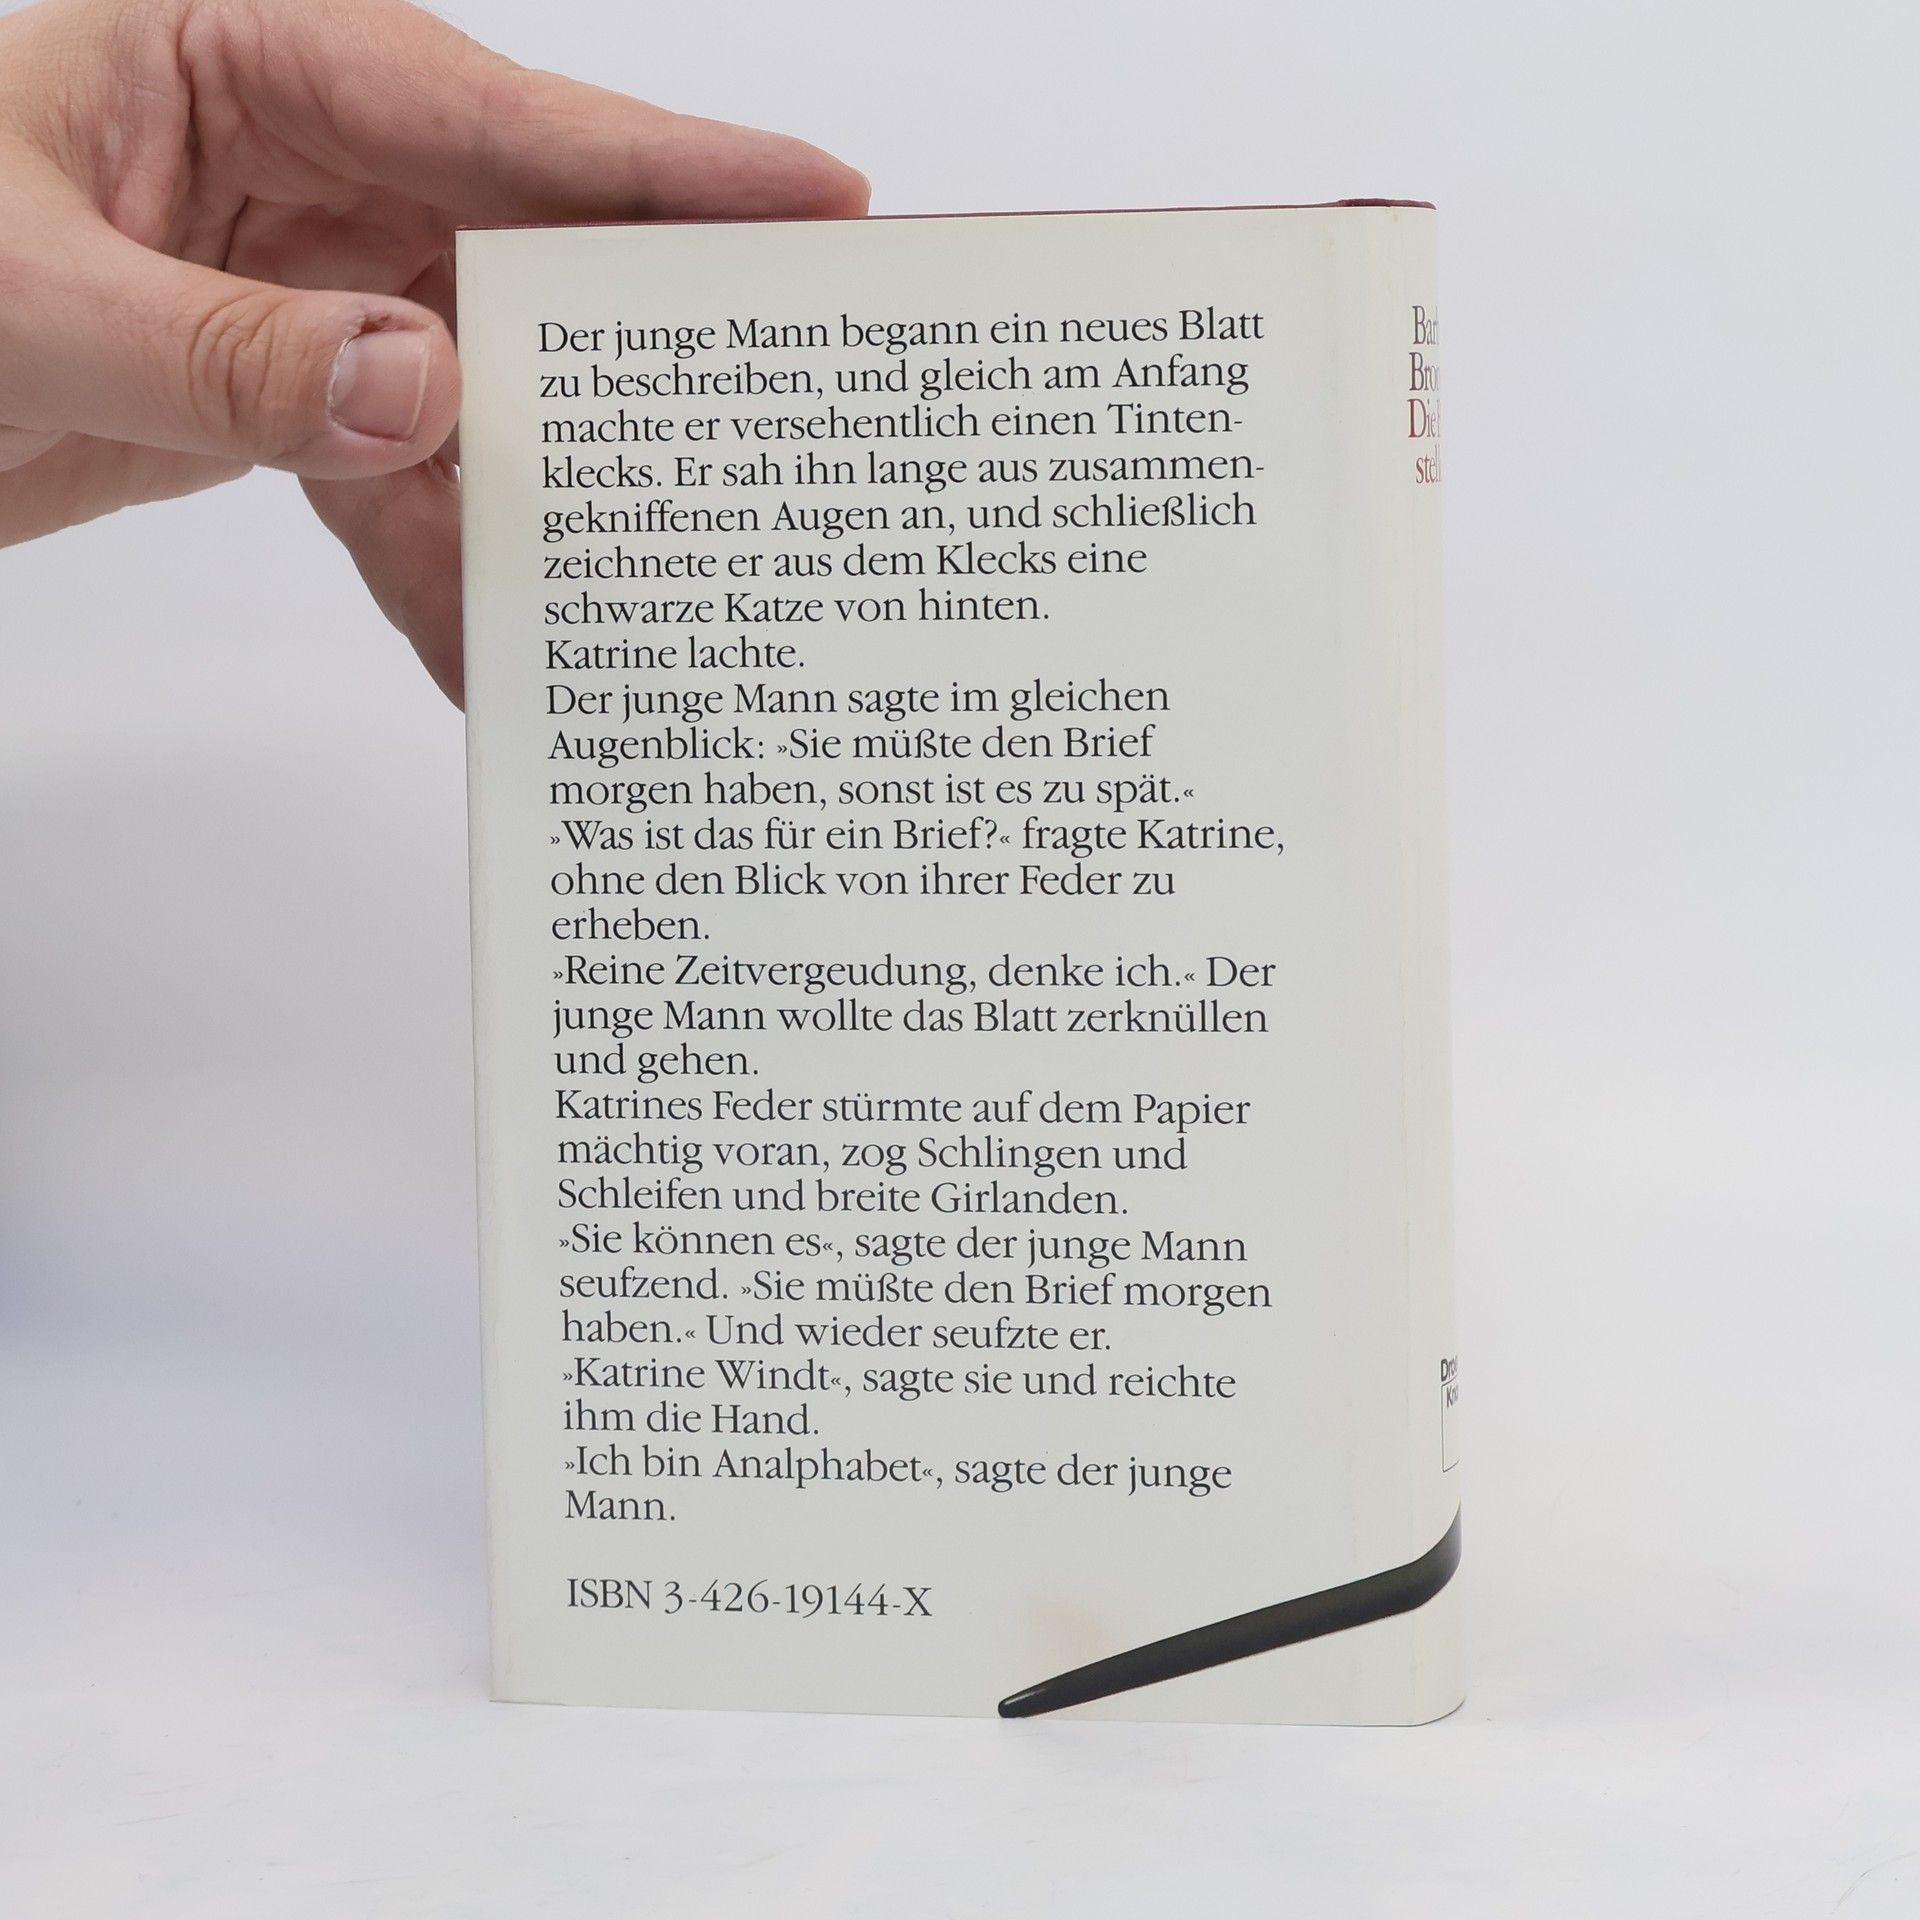 Der junge Mann begann ein neues Blatt
zu beschreiben, und gleich am Anfang
machte er versehentlich einen Tinten-
klecks. Er sah ihn lange aus zusammen-
gekniffenen Augen an, und schließlich
zeichnete er aus dem Klecks eine
schwarze Katze von hinten.
Katrine lachte.
Der junge Mann sagte im gleichen
Augenblick: »Sie müßte den Brief
morgen haben, sonst ist es zu spät.«
»Was ist das für ein Brief?« fragte Katrine,
ohne den Blick von ihrer Feder zu
erheben.
»Reine Zeitvergeudung, denke ich.« Der
junge Mann wollte das Blatt zerknüllen
und gehen.
Katrines Feder stürmte auf dem Papier
mächtig voran, zog Schlingen und
Schleifen und breite Girlanden.
»Sie können es«, sagte der junge Mann
seufzend. »Sie müßte den Brief morgen
haben.« Und wieder seufzte er.
»Katrine Windt«, sagte sie und reichte
ihm die Hand.
»Ich bin Analphabet«, sagte der junge
Mann.
ISBN 3-426-19144-X
Die